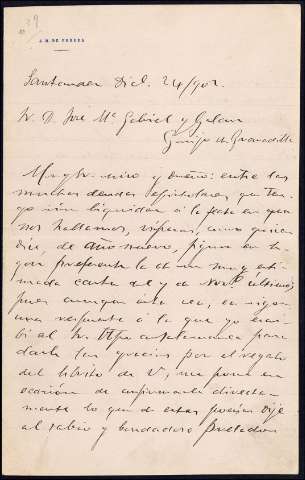 39
J. M. DE PEREDA
Santander Dicê. 24/902.
Sr. D. José Mª Gabriel y Galan
Guijo de Granadilla
Muy Sr. mio y dueño: entre las
muchas deudas epistolares que ten-
go sin liquidar á la fecha en que
nos hallamos, vísperas, como quien
dice de año nuevo, figura en lu-
gar preferente la de su muy esti-
mada carta del 4 de Novê último,
pues aunque ésta sea, en rigor
una respuesta á la que yo escri-
bí al Sr. Obpo. para
darle las gracias por el regalo
del librito de V., me pone en
ocasión de confirmarle directa-
mente lo que de estas poesías dije
al sabio y bondadoso Prelado